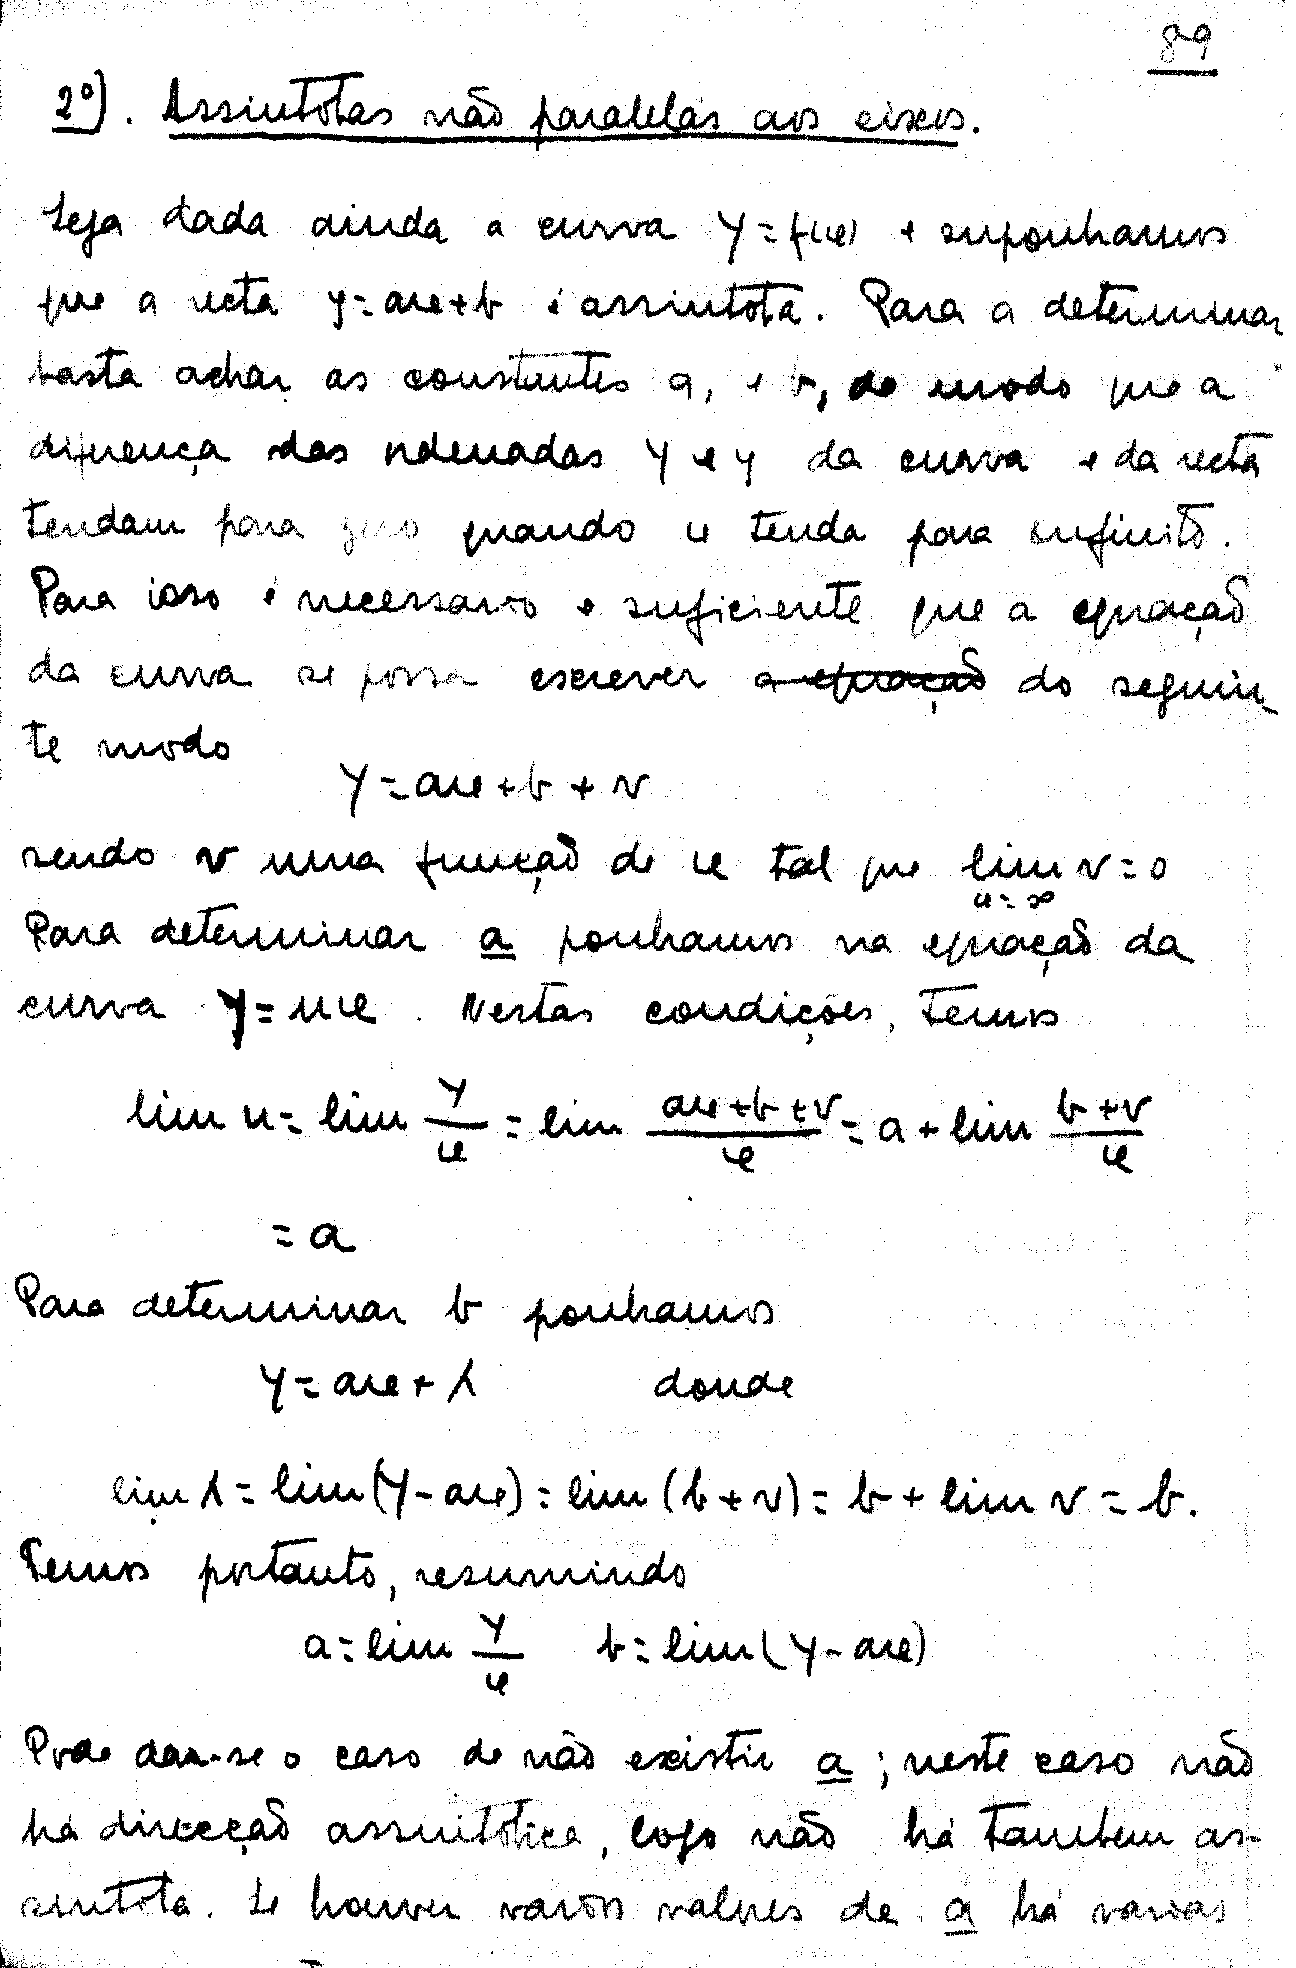 89
2º). Assintotas não paralelas aos eixos.
Seja dada ainda a curva Y=f(x) e suponhamos
que a recta y=ax+b é assintota. Para a determinar
basta achar as constantes a, e b, de modo que a
diferença das ordenadas Y e y da curva e da recta
tendam para zero quando x tenda para infinito.
Para isso é necessario e suficiente que a equação
da curva se possa escrever a equação do seguin-
te modo
Y=ax+b+v
sendo v uma função de x tal que lim v=0
x=∞
Para determinar a ponhamos na equação da
curva Y=ux. Nestas condições, temos
lim u = lim Y/x = lim (ax+b+v)/x = a + lim (b+v)/x
= a
Para determinar b ponhamos
Y=ax+λ donde
lim λ = lim(Y-ax) = lim(b+v) = b + lim v = b.
Temos portanto, resumindo
a = lim Y/x b = lim(Y-ax)
Pode dar-se o caso de não existir a; neste caso não
há direcção assintótica, logo não há tambem as-
sintota. Se houver varios valores de a há varias